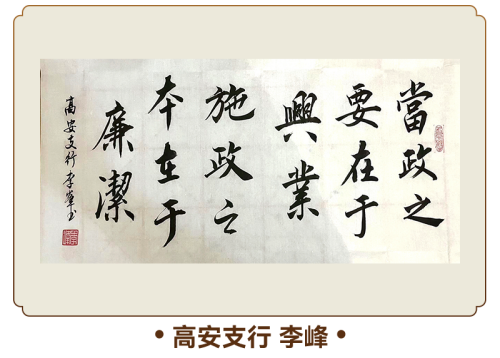 當政之
要在于
興業
施政之
本在于
廉潔
高安支行李峰书
• 高安支行 李峰 •